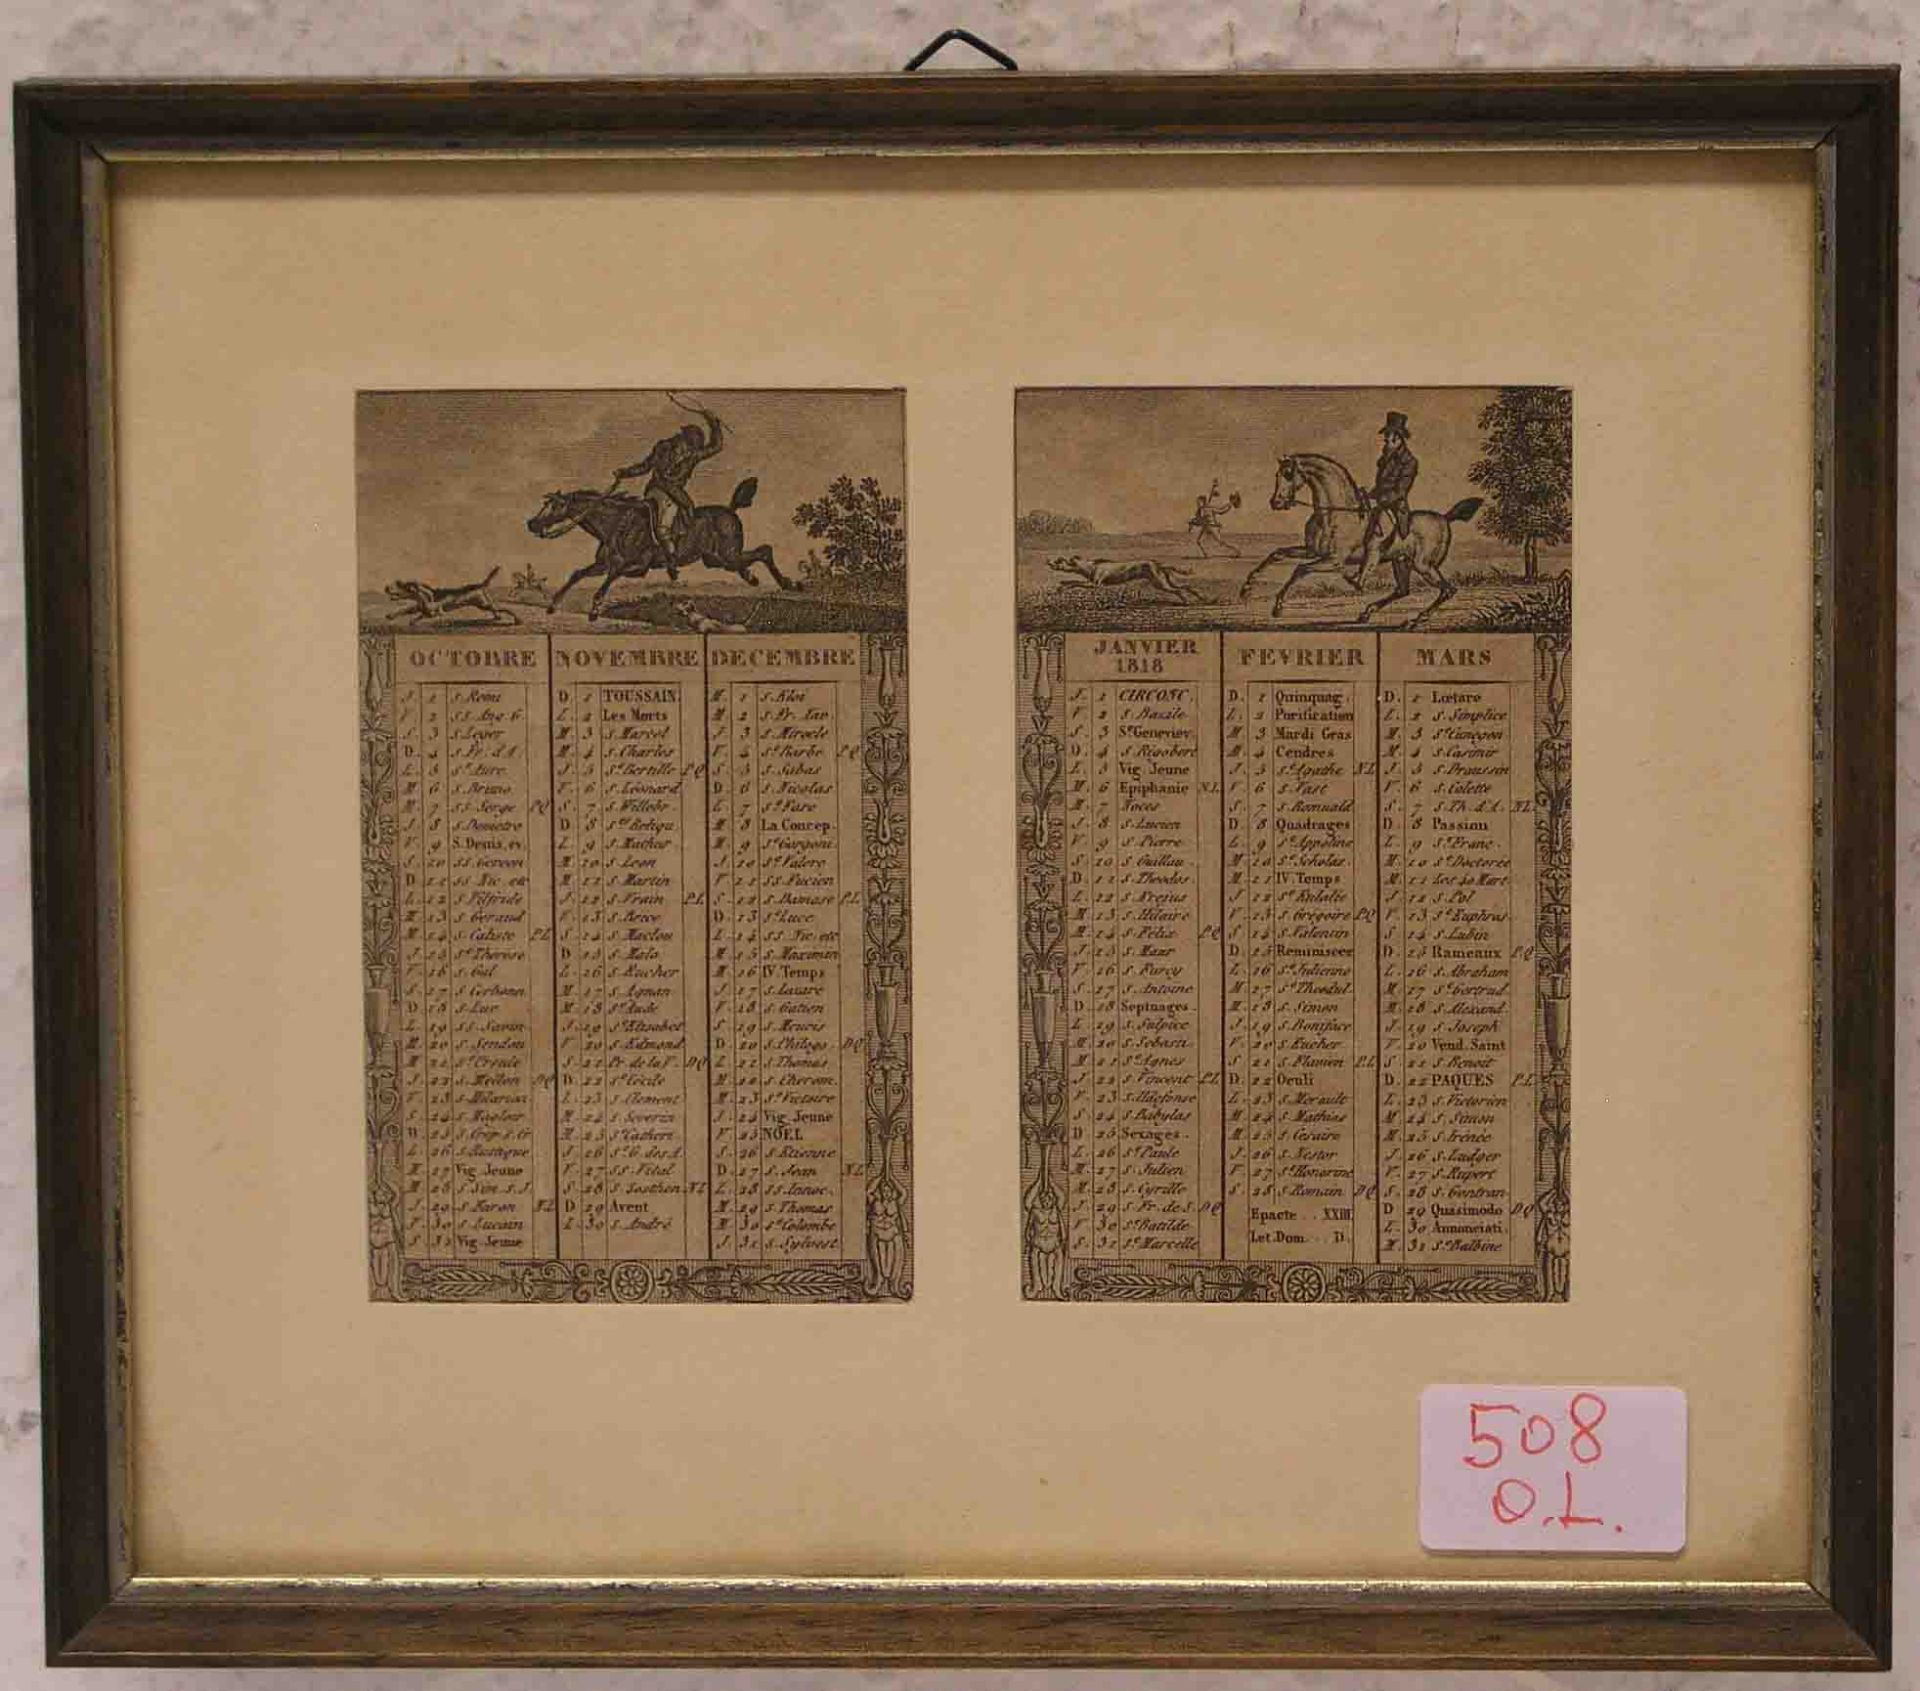 OCTOBRE
J. 1 S. Remi
V. 2 SS. Ang. G.
S. 3 S. Leger
D. 4 S. Fr. d'A.
L. 5 Ste Aure.
M. 6 S. Bruno.
M. 7 SS. Serge PQ
J. 8 S. Demetre
V. 9 S. Denis, ev.
S. 10 SS. Gereon
D. 11 SS. Nic. etc
L. 12 S. Vilfride
M. 13 S. Geraud
M. 14 S. Caliste P.L
J. 15 Ste Thérèse
V. 16 S. Gal
S. 17 S. Cerbonn
D. 18 S. Luc
L. 19 SS. Savin
M. 20 S. Sendou
M. 21 Ste Ursule
J. 22 S. Mellon DQ
V. 23 S. Hilarion
S. 24 S. Magloir
D. 25 S. Crép. S. Cr
L. 26 S. Rustique
M. 27 Vig. Jeune
M. 28 S. Sim. S. J.
J. 29 S. Faron NL
V. 30 S. Lucain
S. 31 Vig. Jeune
NOVEMBRE
D. 1 TOUSSAIN.
L. 2 Les Morts
M. 3 S. Marcel
M. 4 S. Charles
J. 5 Ste Bertille PQ
V. 6 S. Léonard
S. 7 S. Willebr.
D. 8 Stes Reliqu.
L. 9 S. Mathur.
M. 10 S. Leon
M. 11 S. Martin
J. 12 S. Vrain P.L
V. 13 S. Brice
S. 14 S. Maclou
D. 15 S. Malo
L. 16 S. Eucher
M. 17 S. Agnan
M. 18 Ste Aude
J. 19 Ste Elisabet
V. 20 S. Edmond
S. 21 Pr. de la V. DQ
D. 22 Ste Cécile
L. 23 S. Clement
M. 24 S. Severin
M. 25 Ste Catheri.
J. 26 Ste G. des A.
V. 27 SS. Vital
S. 28 S. Sosthen NL
D 29 Avent
L. 30 S. André
DECEMBRE
M. 1 S. Eloi
M. 2 S. Fr. Xav.
J. 3 S. Mirocle
V. 4 Ste Barbe PQ
S. 5 S. Sabas
D. 6 S. Nicolas
L. 7 Ste Fare
M. 8 La Concep.
M. 9 Ste Gorgoni
J. 10 Ste Valere
V. 11 SS. Fucien
S. 12 S. Damase P.L
D. 13 Ste Luce
L. 14 SS. Nic. etc
M. 15 S. Maximin
M. 16 IV. Temps
J. 17 S. Lazare
V. 18 S. Gatien
S. 19 S. Meuris
D. 20 S. Philogo. DQ
L. 21 S. Thomas
M. 22 S. Cherem.
M. 23 Ste Victoire
J. 24 Vig. Jeune
V. 25 NOEL
S. 26 S. Etienne
D. 27 S. Jean NL
L. 28 SS. Innoc.
M. 29 S. Thomas
M. 30 Ste Colombe
J. 31 S. Sylvest
JANVIER
1818
J. 1 CIRCONC.
V. 2 S. Basile
S. 3 Ste Geneviev.
D. 4 S. Rigobert
L. 5 Vig. Jeune
M. 6 Epiphanie NL
M. 7 Noces
J. 8 S. Lucien
V. 9 S. Pierre
S. 10 S. Guillau.
D. 11 S. Theodos.
L. 12 S. Arejus
M. 13 S. Hilaire
M. 14 S. Félix PQ
J. 15 S. Maur
V. 16 S. Furcy
S. 17 S. Antoine
D. 18 Septuages.
L. 19 S. Sulpice
M. 20 S. Sebasti.
M. 21 Ste Agnes
J. 22 S. Vincent P.L
V. 23 S. Ildefonse
S. 24 S. Babylas
D. 25 Sexages.
L. 26 Ste Paule
M. 27 S. Julien
M. 28 S. Cyrille
J. 29 S. Fr. de S. DQ
V. 30 Ste Batilde
S. 31 Ste Marcelle
FEVRIER
D. 1 Quinquag.
L. 2 Purification
M. 3 Mardi Gras
M. 4 Cendres
J. 5 Ste Agathe NL
V. 6 S. Vast
S. 7 S. Romuald
D. 8 Quadrages
L. 9 Ste Appoline
M. 10 Ste Scholas.
M. 11 IV. Temps
J. 12 Ste Eulalie
V. 13 S. Grégoire PQ
S. 14 S. Valentin
D. 15 Reminiscer
L. 16 Ste Julienne
M. 17 Ste Theodul
M. 18 S. Simon
J. 19 S. Boniface
V. 20 S. Eucher
S. 21 S. Flavien P.L
D. 22 Oculi
L. 23 S. Mérault
M. 24 S. Mathias
M. 25 S. Cesaire
J. 26 S. Nestor
V. 27 Ste Honorine
S. 28 S. Romain DQ
Epacte .. XXIII
Let. Dom... D.
MARS
D. 1 Lœtare
L. 2 S. Simplice
M. 3 Ste Cunegon
M. 4 S. Casimir
J. 5 S. Draussin
V. 6 S. Colette
S. 7 S. Th. d'A. NL
D. 8 Passion
L. 9 Ste Franc.
M. 10 Ste Doctorée
M. 11 Les 40 Mart
J. 12 S. Pol
V. 13 Ste Euphras.
S. 14 S. Lubin
D. 15 Rameaux PQ
L. 16 S. Abraham
M. 17 Ste Gertrud
M. 18 S. Alexand.
J. 19 S. Joseph
V. 20 Vend. Saint
S. 21 S. Benoit
D. 22 PAQUES P.L
L. 23 S. Victorien
M. 24 S. Simon
M. 25 S. Irénée
J. 26 S. Ludger
V. 27 S. Rupert
S. 28 S. Gontran
D. 29 Quasimodo DQ
L. 30 Annonciati.
M. 31 Ste Balbine
508
O.L.